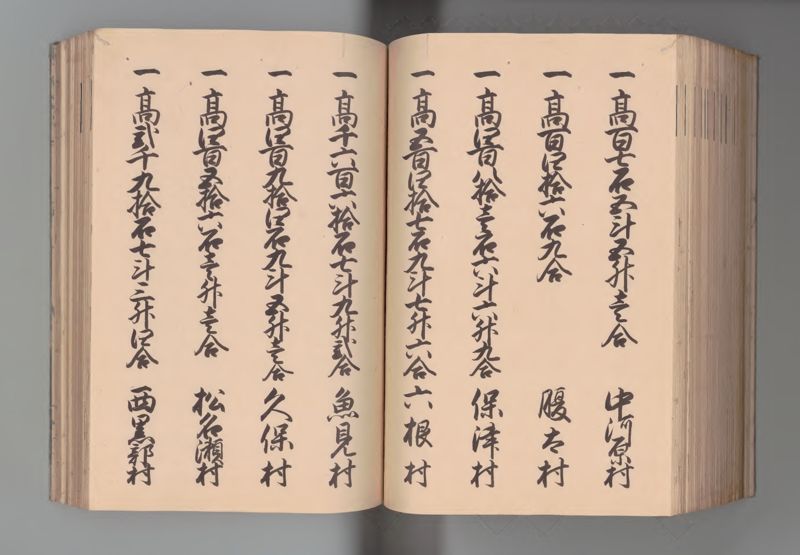 一高百七石五斗五升壱合　中河原村
一高百四拾六石九合　腹太村
一高四百八拾壱石六斗六升九合　保津村
一高五百四拾七石九斗七升六合　六根村
一高千六百六拾石七斗九升弐合　魚見村
一高四百九拾四石九斗五升壱合　久保村
一高四百五拾六石壱升壱合　松名瀬村
一高弐千九拾石七斗三升四合　西黒部村